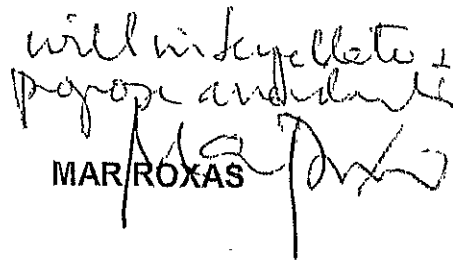 will interpellate &
propose amendments
MAR ROXAS